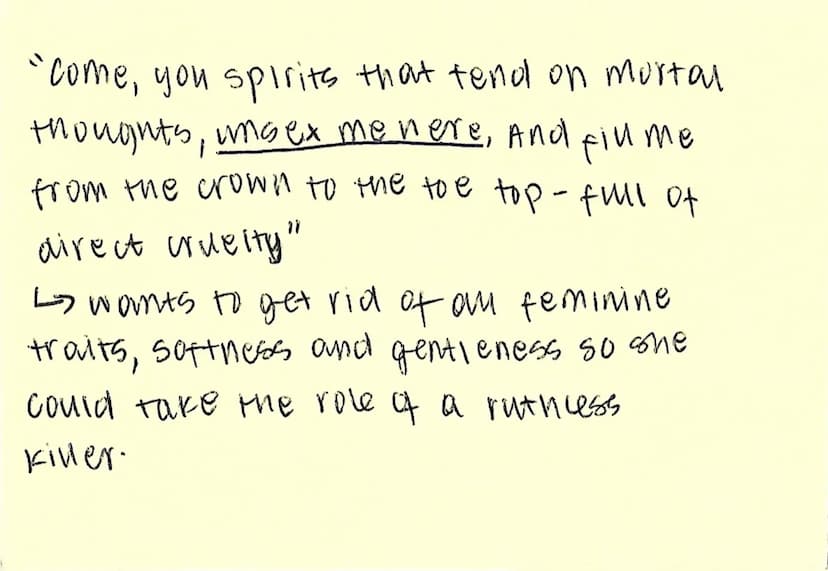 "Come, you spirits that tend on mortal
thoughts, unsex me here, And fill me
from the crown to the toe top-full of
direct cruelty"
↳ wants to get rid of all feminine
traits, softness and gentleness so she
could take the role of a ruthless
killer.